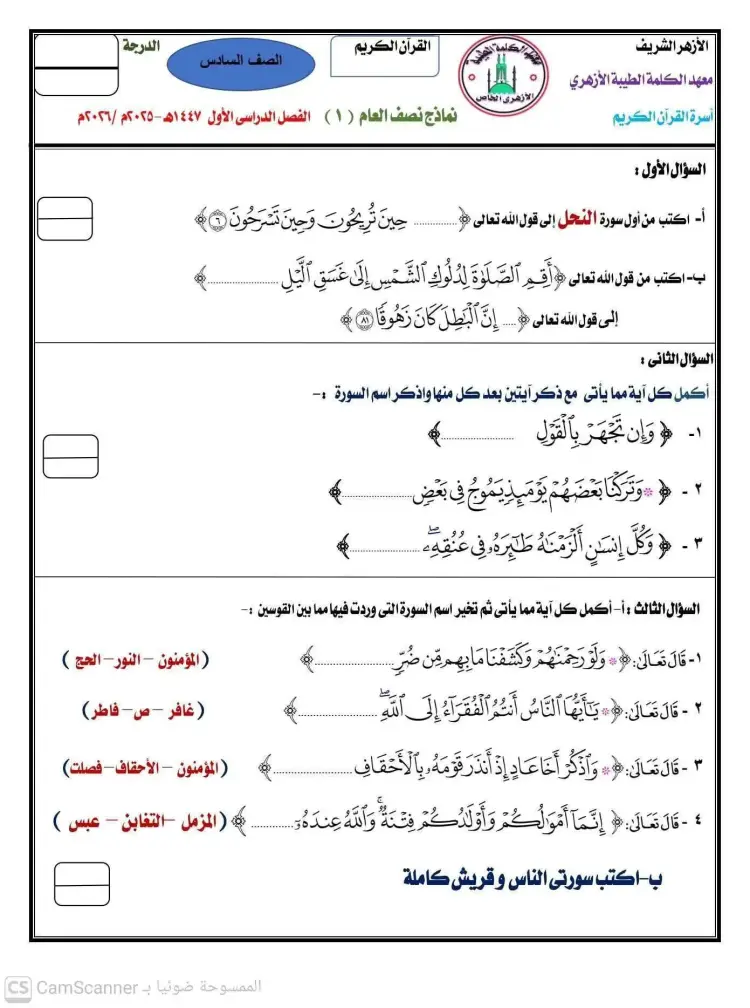 الأزهر الشريف
معهد الكلمة الطيبة الأزهري
أسرة القرآن الكريم
معهد الكلمة الطيبة
الأزهرى الخاص
القرآن الكريم
الصف السادس
الدرجة
نماذج نصف العام ( ١ ) الفصل الدراسى الأول ١٤٤٧هـ -٢٠٢٥م /٢٠٢٦م
السؤال الأول :
أ- اكتب من أول سورة النحل إلى قول الله تعالى ﴿ ............. حِينَ تُرِيحُونَ وَحِينَ تَسْرَحُونَ ٦ ﴾
ب- اكتب من قول الله تعالى ﴿أَقِمِ ٱلصَّلَوٰةَ لِدُلُوكِ ٱلشَّمْسِ إِلَىٰ غَسَقِ ٱلَّيْلِ ......................﴾
إلى قول الله تعالى ﴿ .... إِنَّ ٱلْبَـٰطِلَ كَانَ زَهُوقًا ٨١ ﴾
السؤال الثانى :
أكمل كل آية مما يأتى مع ذكر آيتين بعد كل منها واذكر اسم السورة :-
١- ﴿ وَإِن تَجْهَرْ بِٱلْقَوْلِ ......................﴾
٢ - ﴿ * وَتَرَكْنَا بَعْضَهُمْ يَوْمَئِذٍ يَمُوجُ فِى بَعْضٍ ......................﴾
٣ - ﴿ وَكُلَّ إِنسَـٰنٍ أَلْزَمْنَـٰهُ طَـٰٓئِرَهُۥ فِى عُنُقِهِۦۖ ......................﴾
السؤال الثالث : أ- أكمل كل آية مما يأتى ثم تخير اسم السورة التى وردت فيها مما بين القوسين :-
١- قَالَ تَعَالَىٰ: ﴿ * وَلَوْ رَحِمْنَـٰهُمْ وَكَشَفْنَا مَا بِهِم مِّن ضُرٍّ ......................﴾ ( المؤمنون – النور- الحج )
٢ - قَالَ تَعَالَىٰ: ﴿ * يَـٰٓأَيُّهَا ٱلنَّاسُ أَنتُمُ ٱلْفُقَرَآءُ إِلَى ٱللَّهِۖ ......................﴾ ( غافر – ص- فاطر )
٣ - قَالَ تَعَالَىٰ: ﴿ * وَٱذْكُرْ أَخَا عَادٍ إِذْ أَنذَرَ قَوْمَهُۥ بِٱلْأَحْقَافِ ......................﴾ ( المؤمنون – الأحقاف- فصلت)
٤ - قَالَ تَعَالَىٰ: ﴿ إِنَّمَآ أَمْوَٰلُكُمْ وَأَوْلَـٰدُكُمْ فِتْنَةٌۚ وَٱللَّهُ عِندَهُۥٓ ............﴾ ( المزمل –التغابن – عبس )
ب-اكتب سورتى الناس و قريش كاملة
الممسوحة ضوئيا بـ CamScanner
CS